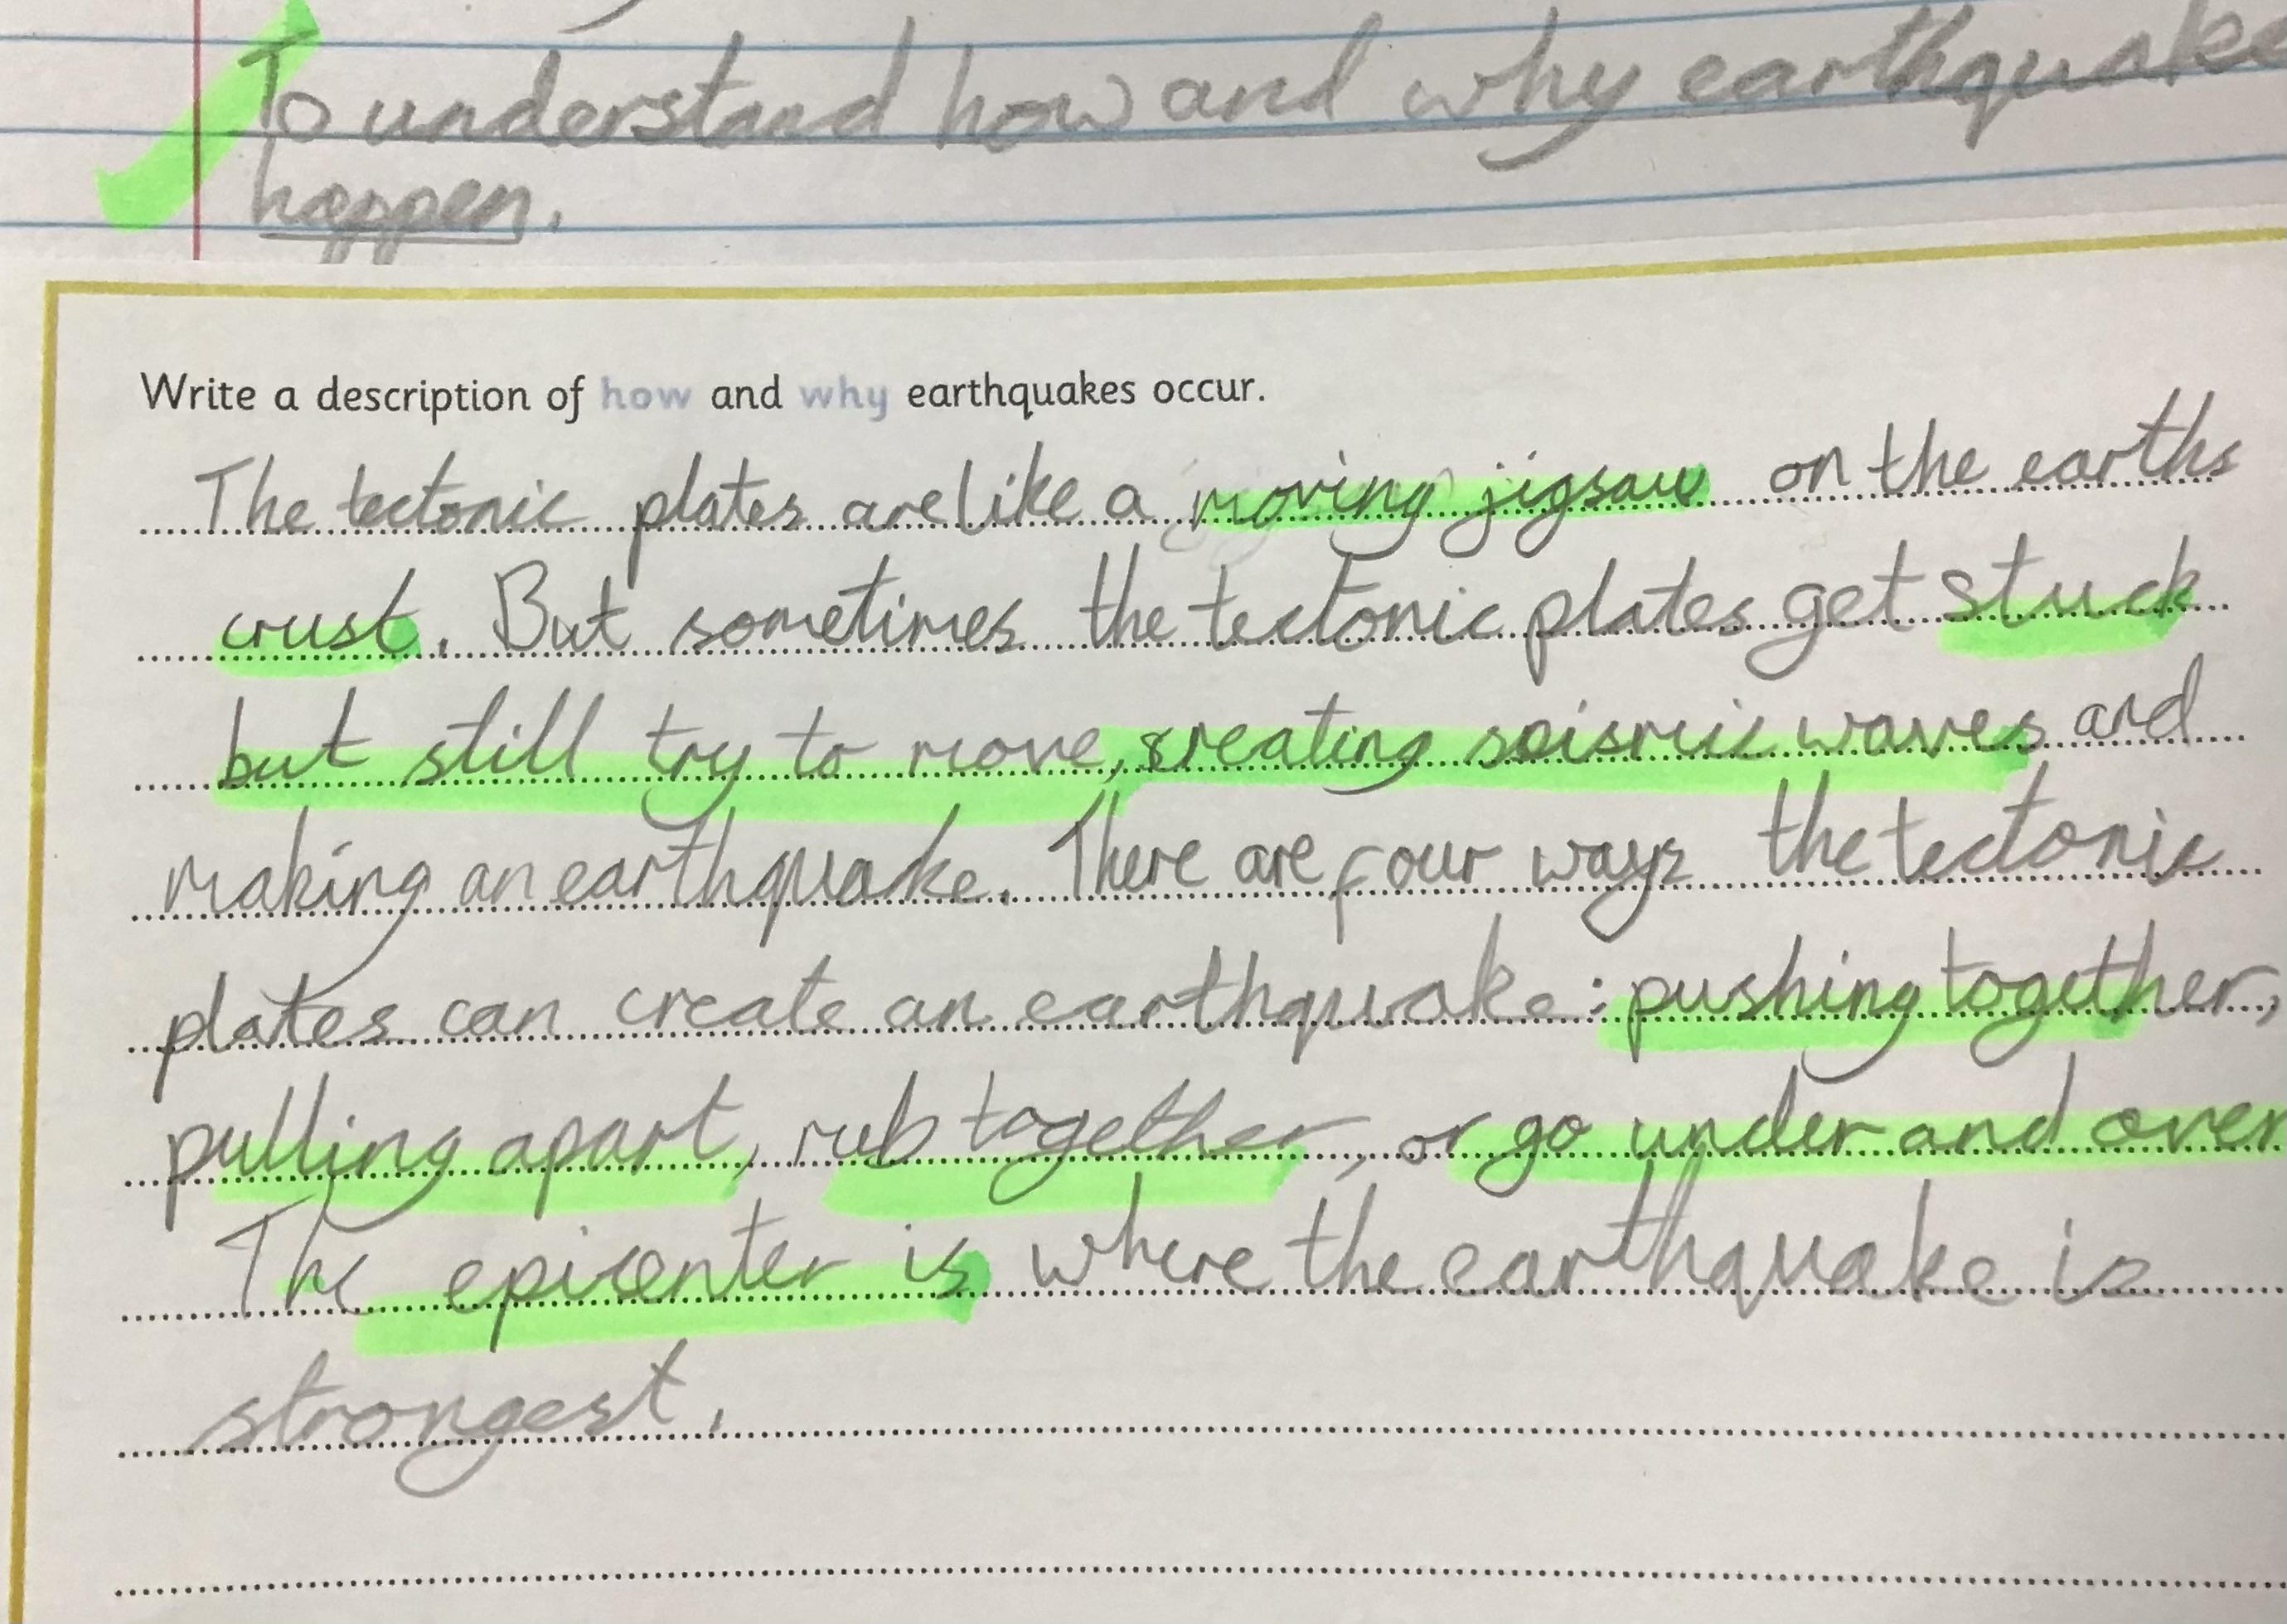 To understand how and why earthquake
happen.
Write a description of how and why earthquakes occur.
The tectonic plates are like a moving jigsaw on the earths
crust. But sometimes the tectonic plates get stuck
but still try to move, creating seismic waves and
making an earthquake. There are four ways the tectonic
plates can create an earthquake: pushing together,
pulling apart, rub together, or go under and over
The epicenter is where the earthquake is
strongest.